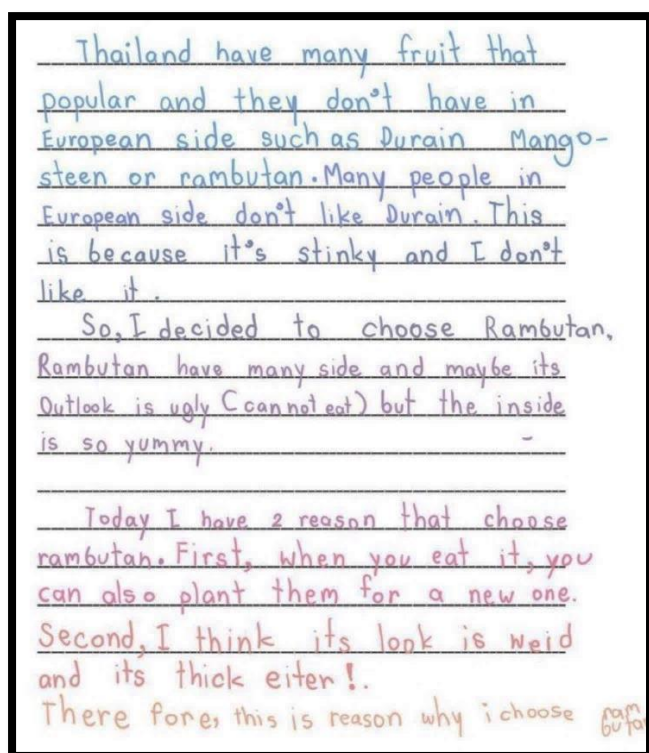 Thailand have many fruit that
popular and they don't have in
European side such as Durain Mango-
steen or rambutan. Many people in
European side don't like Durain. This
is because it's stinky and I don't
like it.
So, I decided to choose Rambutan,
Rambutan have many side and maybe its
Outlook is ugly (can not eat) but the inside
is so yummy.
Today I have 2 reason that choose
rambutan. First, when you eat it, you
can also plant them for a new one.
Second, I think its look is weid
and its thick eiter!.
There fore, this is reason why i choose ram
butan